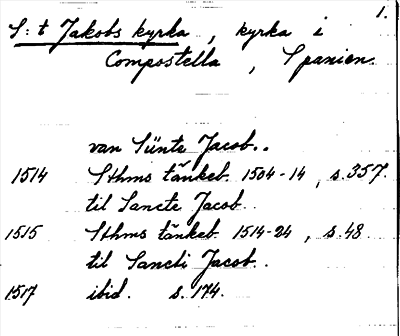 1.
S:t Jakobs kyrka, kyrka i
Compostella, Spanien.
van Sünte Jacob..
1514 Sthms tänkeb. 1504-14, s. 357.
til Sancte Jacob.
1515 Sthms tänkeb. 1514-24, s. 48.
til Sancti Jacob..
1517 ibid. s. 174.